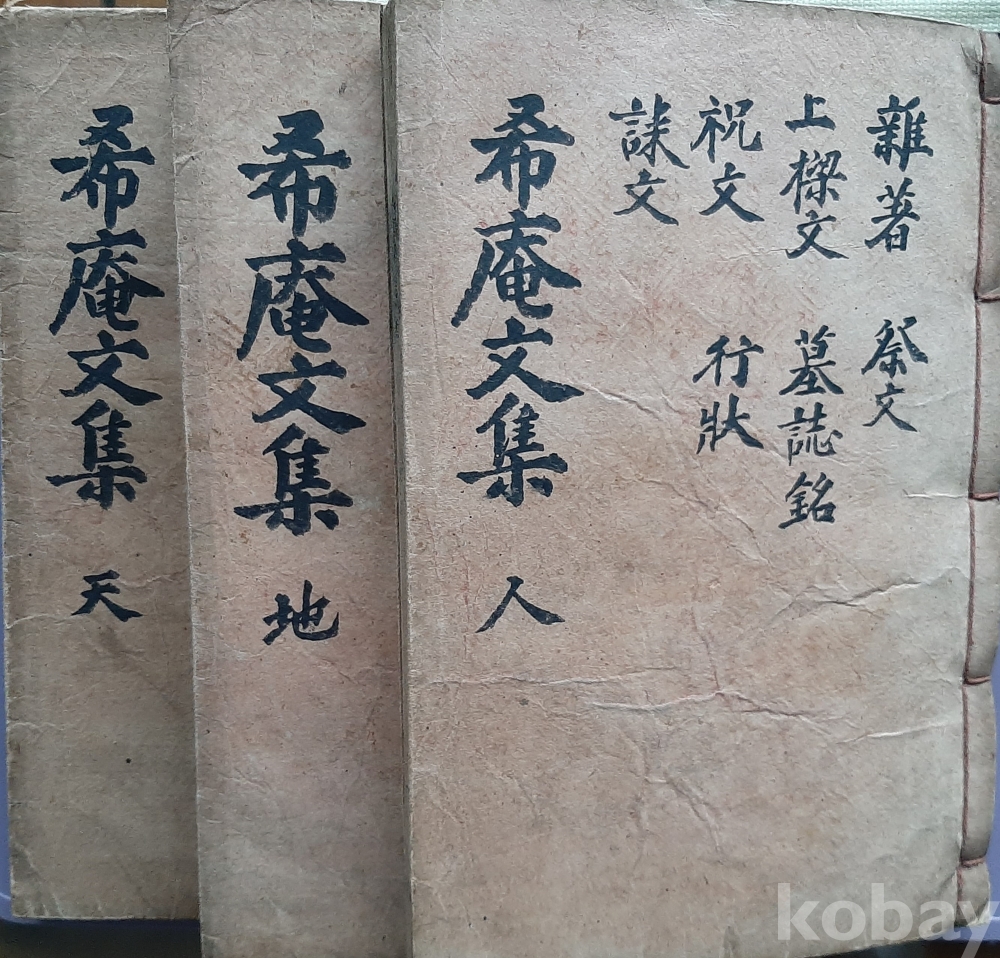 雜著 祭文
上樑文 墓誌銘
祝文 行狀
誄文
希庵文集 人
希庵文集 地
希庵文集 天
kobay